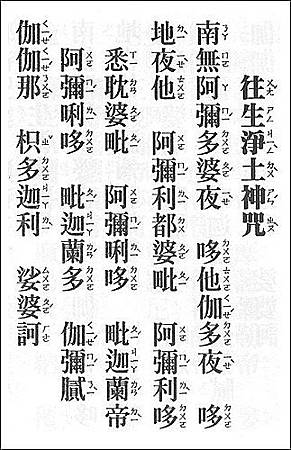 往生淨土神咒
南無阿彌多婆夜 哆他伽多夜 哆
地夜他 阿彌利都婆毗 阿彌利哆
悉耽婆毗 阿彌唎哆 毗迦蘭帝
阿彌唎哆 毗迦蘭多 伽彌膩
伽伽那 枳多迦利 娑婆訶